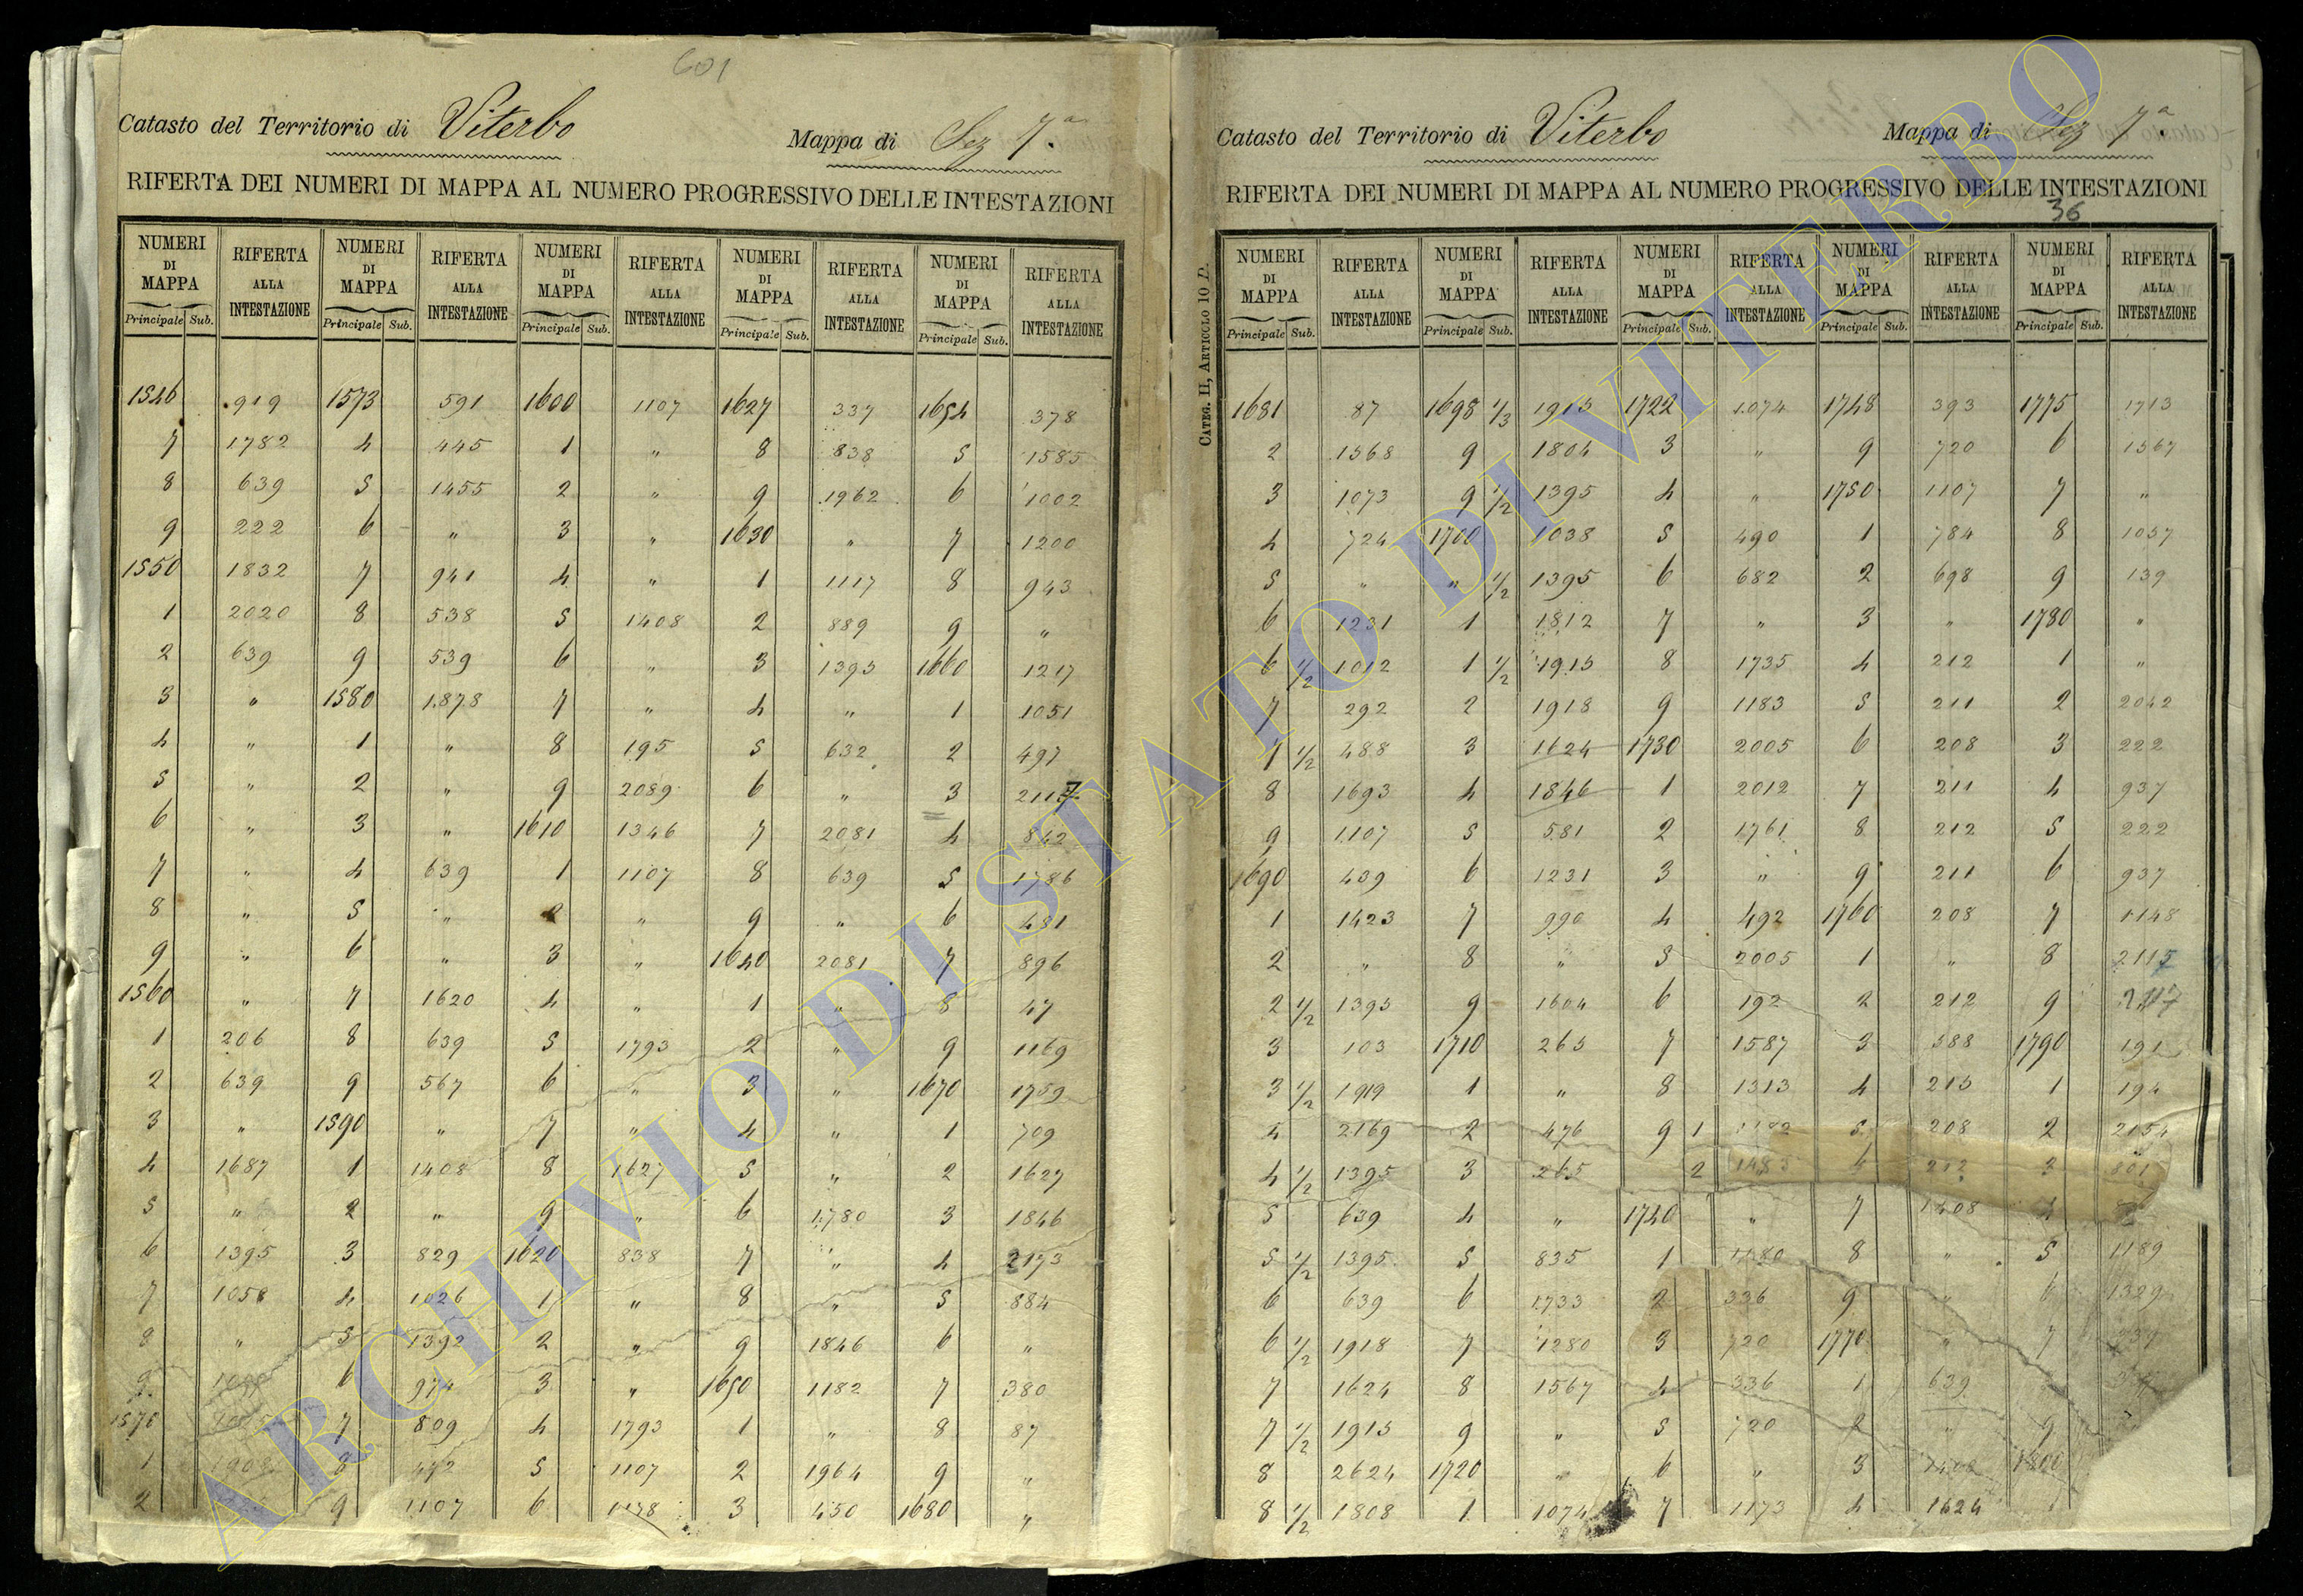 601
Catasto del Territorio di Viterbo Mappa di Sez 7.ª
RIFERTA DEI NUMERI DI MAPPA AL NUMERO PROGRESSIVO DELLE INTESTAZIONI
NUMERI DI MAPPA RIFERTA ALLA INTESTAZIONE NUMERI DI MAPPA RIFERTA ALLA INTESTAZIONE NUMERI DI MAPPA RIFERTA ALLA INTESTAZIONE NUMERI DI MAPPA RIFERTA ALLA INTESTAZIONE NUMERI DI MAPPA RIFERTA ALLA INTESTAZIONE
Principale Sub. Principale Sub. Principale Sub. Principale Sub. Principale Sub.
1546 919 1573 591 1600 1107 1627 337 1654 378
7 1782 4 445 1 " 8 838 5 1585
8 639 5 1455 2 " 9 1962 6 1002
9 222 6 " 3 " 1630 " 7 1200
1550 1832 7 941 4 " 1 1117 8 943
1 2020 8 538 5 1408 2 889 9 "
2 639 9 539 6 " 3 1395 1660 1217
3 " 1580 1878 7 " 4 " 1 1051
4 " 1 " 8 195 5 632 2 497
5 " 2 " 9 2089 6 " 3 2117
6 " 3 " 1610 1346 7 2081 4 842
7 " 4 639 1 1107 8 639 5 1786
8 " 5 " 2 " 9 " 6 431
9 " 6 " 3 " 1640 2081 7 896
1560 " 7 1620 4 " 1 " 8 47
1 206 8 639 5 1793 2 " 9 1169
2 639 9 567 6 " 3 " 1670 1759
3 " 1590 " 7 " 4 " 1 709
4 1687 1 1408 8 1627 5 " 2 1627
5 " 2 " 9 " 6 1780 3 1846
6 1395 3 829 1620 838 7 " 4 2173
7 1058 4 1026 1 " 8 " 5 884
8 " 5 1392 2 " 9 1846 6 "
9 6 974 3 " 1650 1182 7 380
1570 7 809 4 1793 1 " 8 87
1 8 472 5 1107 2 1964 9 "
2 9 1107 6 1178 3 450 1680 "
Catasto del Territorio di Viterbo Mappa di Sez 7.ª
RIFERTA DEI NUMERI DI MAPPA AL NUMERO PROGRESSIVO DELLE INTESTAZIONI
36
CATEG. II, ARTICLO 10 D.
NUMERI DI MAPPA RIFERTA ALLA INTESTAZIONE NUMERI DI MAPPA RIFERTA ALLA INTESTAZIONE NUMERI DI MAPPA RIFERTA ALLA INTESTAZIONE NUMERI DI MAPPA RIFERTA ALLA INTESTAZIONE NUMERI DI MAPPA RIFERTA ALLA INTESTAZIONE
Principale Sub. Principale Sub. Principale Sub. Principale Sub. Principale Sub.
1681 87 1698 1/3 1915 1722 1074 1748 393 1775 1713
2 1568 9 1804 3 " 9 720 6 1567
3 1073 9 1/2 1395 4 " 1750 1107 7 "
4 724 1700 1038 5 490 1 784 8 1057
5 " " 1/2 1395 6 682 2 698 9 139
6 1231 1 1812 7 " 3 " 1780 "
6 1/2 1012 1 1/2 1915 8 1735 4 212 1 "
7 292 2 1918 9 1183 5 211 2 2042
7 1/2 488 3 1624 1730 2005 6 208 3 222
8 1693 4 1846 1 2012 7 211 4 937
9 1107 5 581 2 1761 8 212 5 222
1690 439 6 1231 3 " 9 211 6 937
1 1423 7 990 4 492 1760 208 7 1148
2 " 8 " 5 2005 1 " 8 2117
2 1/2 1395 9 1604 6 192 2 212 9 2117
3 103 1710 265 7 1587 3 588 1790 191
3 1/2 1919 1 " 8 1313 4 215 1 194
4 2169 2 476 9 1 1182 5 208 2 2154
4 1/2 1395 3 265 2 1485 6 212 3 801
5 639 4 " 1740 " 7 1408 4
5 1/2 1395 5 835 1 1180 8 " 5 1189
6 639 6 1733 2 336 9 " 6 1329
6 1/2 1918 7 1280 3 720 1770 " 7
7 1624 8 1567 4 336 1 639
7 1/2 1915 9 " 5 720 2 " 9
8 2624 1720 " 6 " 3 1408 1800
8 1/2 1808 1 1074 7 1173 4 1624
ARCHIVIO DI STATO DI VITERBO